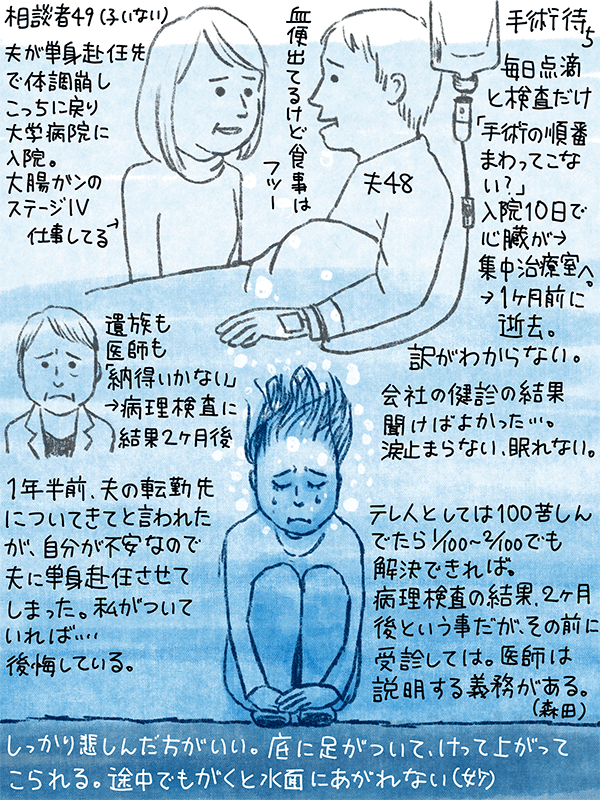 相談者49(ふいない)
夫が単身赴任先
で体調崩し
こっちに戻り
大学病院に
入院。
大腸ガンの
ステージⅣ
仕事してる→
血便出てるけど食事は
フツー
夫48
手術待ち
毎日点滴
と検査だけ
「手術の順番
まわってこな
い?」
入院10日で
心臓が→
集中治療室へ。
→1ヶ月前に
逝去。
訳がわからない。
遺族も
医師も
「納得いかない」
→病理検査に
結果2ヶ月後
会社の健診の結果
聞けばよかった…。
涙止まらない、眠れない。
1年半前、夫の転勤先
についてきてと言われた
が、自分が不安なので
夫に単身赴任させて
しまった。私がついて
いれば‥‥
後悔している。
テレ人としては100苦しん
でたら1/100~2/100でも
解決できれば。
病理検査の結果、2ヶ月
後という事だが、その前に
受診しては。医師は
説明する義務がある。
(森田)
しっかり悲しんだ方がいい。底に足がついて、けって上がって
こられる。途中でもがくと水面にあがれない(妙)